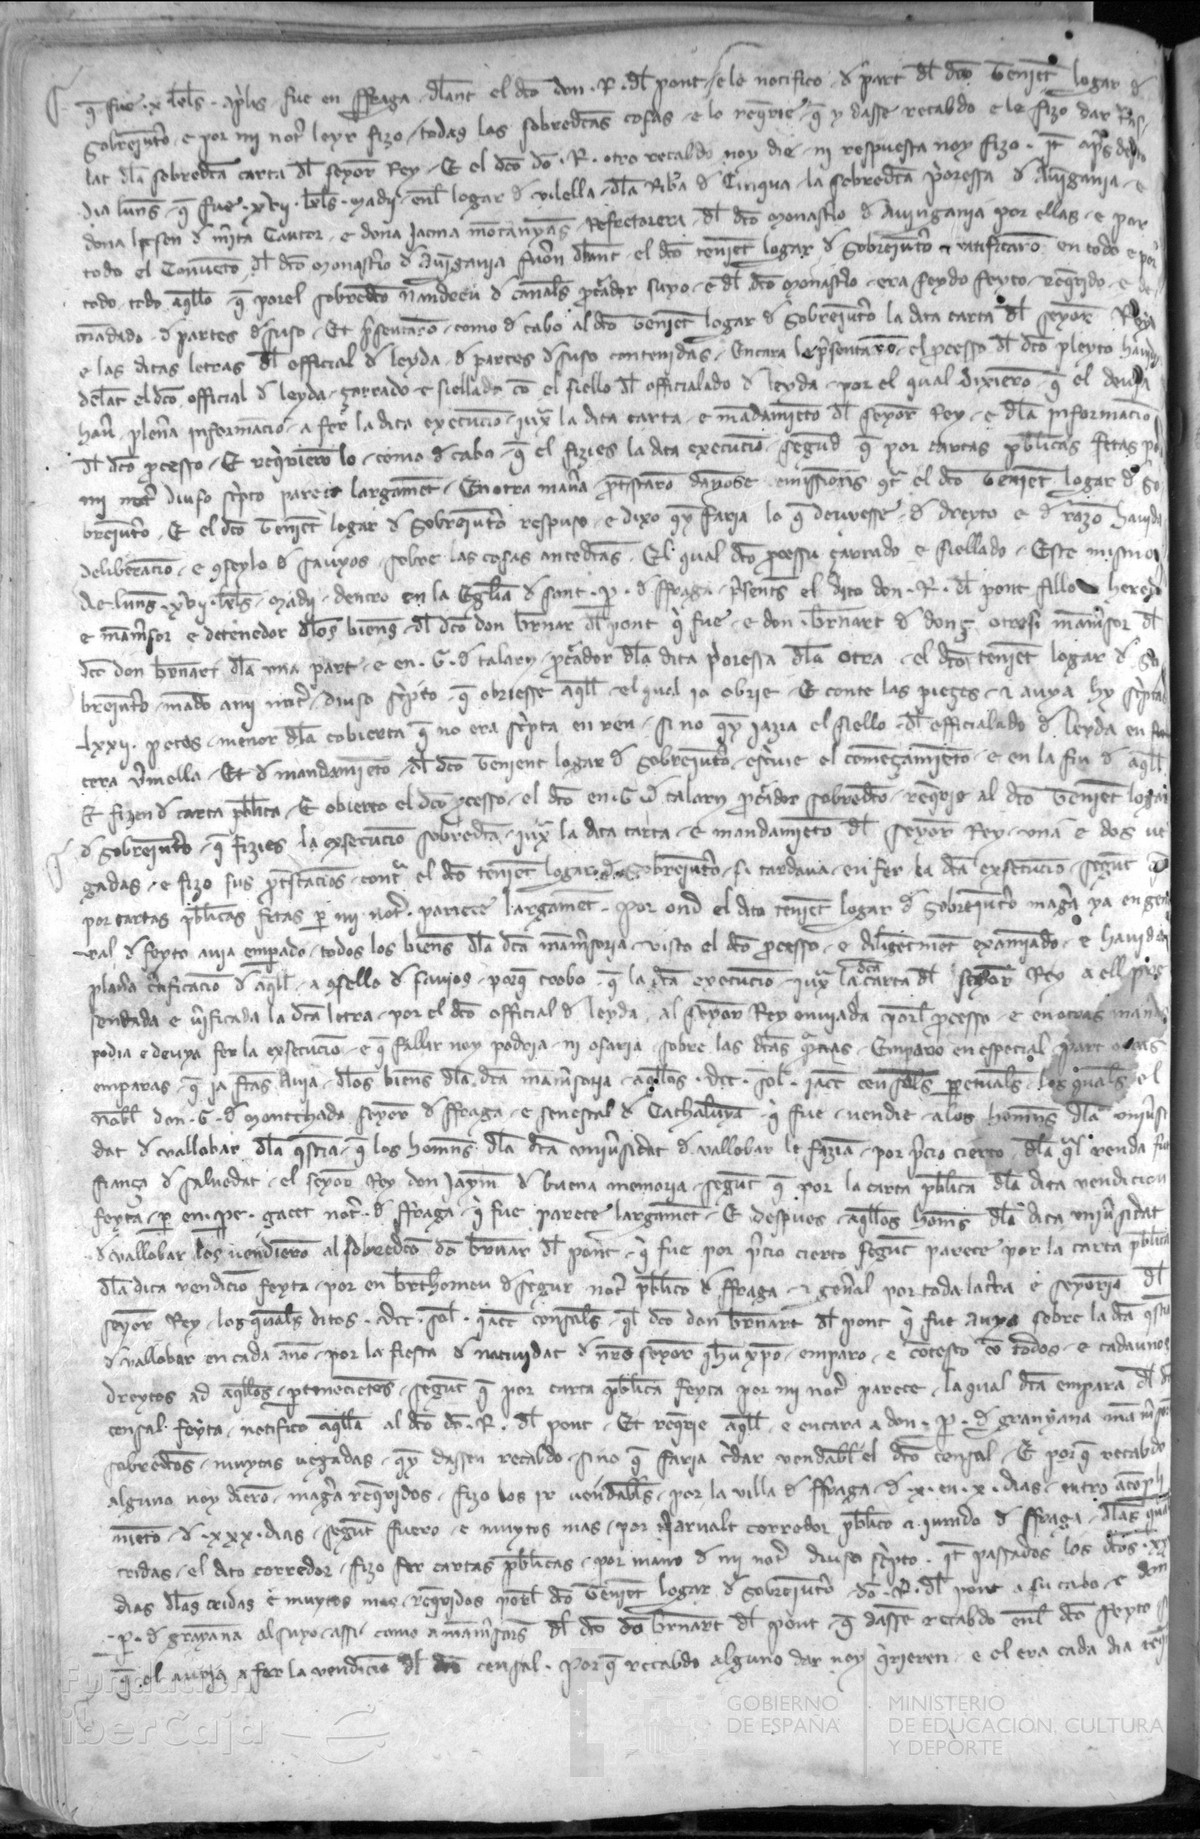 q̄ fue · x · kls̄ · ap̄lis · fue en ffraga · dlāt el dc̄o don · R · dl̄ pont / e le notifico · d part dl̄ dc̄o tenient̄ logar d
Sobreiūtō · e por mi not̄ leyr fizo · todas las sobredc̄as cosas · e lo req̄rie · q̄ y dasse recabdo e le fizo dar
lat dl̄a sobredc̄a carta dl̄ seyor̄ Rey · E el dc̄o dō · R · otro recabdo noy die · ni respuesta noy fizo · It̄ ap̄s
dia luns̄ · q̄ fue · xvii · kls̄ · madii · enl̄ logar d vilella · dl̄a Rib̄a d Cinqua · la sobredc̄a p̄oressa d Auīgania · e
dona d m̄ita Cantor · e dona Jacma mōtanyās Refretorera · dl̄ dc̄o monast̄io d Auingania por ellas · e por
todo el Conuēto dl̄ dc̄o monast̄io d Auīgania fuōn dlāt · el dc̄o tenient̄ logar d Sobreiūtō e ratificarō en todo e por
todo · todo aq̄llo q̄ por el sobredc̄o d canals̄ p̄cādor suyo · e dl̄ dc̄o monast̄io · era seydo feyto · req̄rido · e de
mādado · d partes d suso · Et p̄sentarō · como d cabo al dc̄o tenient̄ logar d Sobreiūtō la dita carta dl̄ seyor̄ Rey
e las ditas letras dl̄ official d leyda · d partes d suso contenidas · Encara le p̄sentarō · el p̄cesso dl̄ dc̄o pleyto
delāt el dc̄o official d leyda · çarrado e siellado cō el siello dl̄ officialado d leyda · por el qual dixierō · q̄ el deuja
hau̅ · plen̄a informaciō · a fer la dita execuciō · iux̄ la dita carta · e mādamiēto dl̄ seyor̄ Rey · e dl̄a informaciō
dl̄ dc̄o p̄cesso · E req̄rierō lo · como d cabo · q̄ el fizies la dita execuciō · segūd q̄ por cartas pb̄licas fetas por
mi not̄ diuso sc̄pto parece largamēt · En otra man̄a p̄testarō daquose emissiōns 9tr̄ el dc̄o tenient̄ logar d So
breiūtō · E el dc̄o tenient̄ logar d Sobreiūtō respuso · e dixo q̄y faria lo q̄ deuiesse · d dreyto e d razō hauida
deliberaciō · e 9seylo d sauyos · sobre las cosas antedc̄as · El qual dc̄o p̄cessu çarrado e siellado · Este mismo
die luns̄ · xvii · kls̄ · madii · dentro en la Eglia d sant · P · d ffraga · p̄sents̄ el dito don · R · dl̄ pont fillo hered
e mām̄sor e detenedor dlos biens̄ · dl̄ dc̄o don bernar dl̄ pont q̄ fue · e don · bernart d dons otrosi mām̄sor dl̄
dc̄o don bernart dl̄a una part · e en · G · d talarn · p̄cādor dl̄a dita p̄oressa dl̄a otra · el dc̄o tenient̄ logar d So
breiūtō · mādo ami not̄ · diuso sc̄pto · q̄ obriesse aq̄ll · el qual io obrie · E conte las pieças · e auya hy sc̄ptas
lxxii · peces · menor dl̄a cobierta q̄ no era sc̄pta en ren · si no q̄y iazia el siello dl̄ officialado d leyda en
cera v̄mella · Et d mandamiēto dl̄ dc̄o tenient logar d Sobreiūtō · esc̄uie el comēçamiēto · e en la fin d aq̄ll
E fizend carta pb̄lica · E obierto el dc̄o p̄cesso · el dc̄o en · G · d talarn p̄cādor sobredc̄o · req̄rie al dc̄o tenient̄ logar
d Sobreiūtō · q̄ fizies la exsecuciō sobredc̄a · iux̄ la dita carta · e mandamiēto dl̄ seyor̄ Rey · una e dos ue
gadas · e fizo sus p̄testaciōs · contr̄ el dc̄o tenient̄ logar d Sobreiūtō · si tardaua · en fer la dc̄a exsecuciō · segūt q̄
por cartas pb̄licas fetas p̄ mi not̄ · parece largamēt · Por ond el dito tenient̄ logar d Sobreiūtō maḡa ya en gene
ral d feyto auia emparado · todos los biens̄ dl̄a dc̄a mām̄soria · visto el dc̄o p̄cesso · e diligētmēt examinado · e hauida
plan̄a c̄tificaciō d aq̄ll · a 9sello d sauios · porq̄ trobo · q̄ la dc̄a execuciō · iux̄ la dc̄a carta dl̄ seyor̄ Rey a ell p̄se
sentada e v̄ificada la dc̄a letra · por el dc̄o official d leyda · al seyor̄ Rey enuiada e porl̄ p̄cesso · e en otras man̄as
podia e deuya fer la exsecuciō · e q̄ fallir noy podria · ni osaria · sobre las dc̄as · Emparo en especial part otras
emparas · q̄ ja fetas auia · dlos biens̄ dl̄a dc̄a mām̄soria · aq̄llos · dcc · sol̄ · iacc̄ censals̄ p̄petuals̄ · los quals̄ el
nobl̄ don · G · d Montchada seyor̄ d ffraga · e senescal d Cathalunya · q̄ fue · vendie · alos homns̄ dl̄a uniūsi
dat d vallobar dl̄a · q̄ los homns̄ dl̄a dc̄a uniūsidat d vallobar le faziā · por p̄cio cierto · dl̄a q̄l venda fue
fiança d saluedat · el seyor̄ Rey don Jaym̄ d buena memoria · segūt q̄ por la carta pb̄lica dl̄a dita vendicion
feyta · p̄ en · pe · gacet not̄ · d ffraga · q̄ fue parece largamēt · E despues · aq̄llos homns̄ dl̄a dita uniūsidat
d vallobar los vendierō al sobredc̄o dō bernar dl̄ pont · q̄ fue por p̄cio cierto segūt parece por la carta pb̄lica
dl̄a dita vendiciō feyta · por en bertholomeu d segur not̄ pb̄lico d ffraga · e gen̄al por toda la t̄ra e seyoria dl̄
seyor̄ Rey · los quals̄ ditos · dcc · sol̄ · iacc̄ censals̄ · q̄l dc̄o don bernart dl̄ pont q̄ fue auya sobre la dc̄a
d vallobar en cada año · por la fiesta d natiuidat d nr̄o seyor ih̄u xp̄o · emparo · e cōtesto cō todos · e cadaunos
dreytos ad aq̄llos · p̄tenecietes · segūt q̄ por carta pb̄lica feyta por mi not̄ parece · la qual dc̄a empara dl̄ dc̄o
censal · feyta · notifico aq̄lla al dc̄o dō · R · dl̄ pont · Et req̄rie aq̄ll · e encara a don · P · d granyana mām̄sors
sobredc̄os · muytas uegadas · q̄y dassen recabdo · si no q̄ faria c̄dar vendabl̄ el dc̄o censal · E porq̄ recabdo
alguno noy dierō · maḡa req̄ridos · fizo los ir vendabls̄ · por la villa d ffraga · d · x · en · x · dias · entro acōpli
miēto · d · xxx · dias · segūt fuero · e muytos mas · por Narualt corredor pb̄lico e iurado d ffraga · dlas quals
cridas · el dito corredor · fizo fer cartas pb̄licas · por mano d mi not̄ diuso sc̄pto · It̄ passados los dc̄os · xxx
dias dlas cridas e muytos mas · req̄ridos porl̄ dc̄o tenient̄ logar d Sobreiūtō · dō · R · dl̄ pont a su cabo · e don
· P · d grayana al suyo · assi como a mām̄sors̄ dl̄ dc̄o dō bernart dl̄ pont · q̄ dassē recabdo enl̄ dc̄o feyto
q̄ el auria a fer la vendiciō dl̄ dc̄o censal · Porq̄ recabdo alguno dar noy q̄rieren · e el era cada dia
Fundación
iberCaja
GOBIERNO
DE ESPAÑA
MINISTERIO
DE EDUCACIÓN, CULTURA
Y DEPORTE